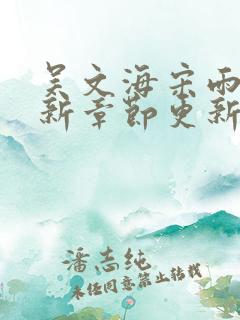 吴文海宋雨
新章节更新
潘志纯
未经同意禁止转载